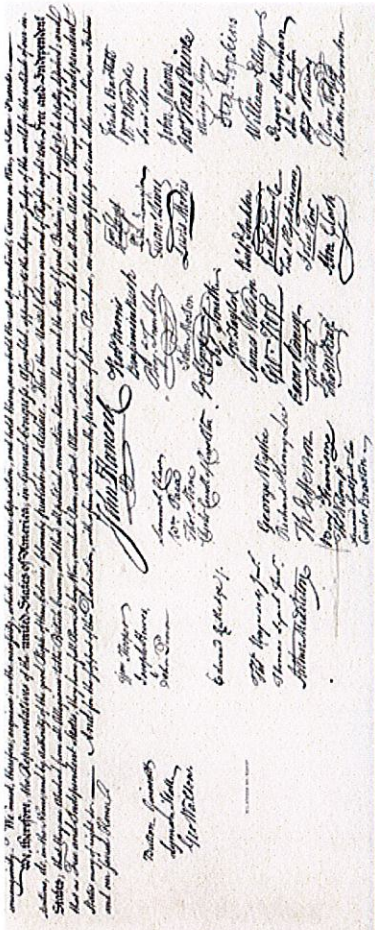 consanguinity. We must, therefore, acquiesce in the necessity, which denounces our Separation, and hold them, as we hold the rest of mankind, Enemies in War, in Peace Friends. —
We, therefore, the Representatives of the united States of America, in General Congress, Assembled, appealing to the Supreme Judge of the world for the rectitude of our in-
tentions, do, in the Name, and by Authority of the good People of these Colonies, solemnly publish and declare, That these United Colonies are, and of Right ought to be Free and Independent
States; that they are Absolved from all Allegiance to the British Crown, and that all political connection between them and the State of Great Britain, is and ought to be totally dissolved; and
that as Free and Independent States, they have full Power to levy War, conclude Peace, contract Alliances, establish Commerce, and to do all other Acts and Things which Independent
States may of right do. — And for the support of this Declaration, with a firm reliance on the protection of divine Providence, we mutually pledge to each other our Lives, our Fortunes
and our sacred Honor.
Button Gwinnett
Lyman Hall
Geo Walton.
Wm Hooper
Joseph Hewes,
John Penn
Edward Rutledge /.
Thos Heyward Junr.
Thomas Lynch Junr.
Arthur Middleton
John Hancock
Samuel Chase
Wm Paca
Thos Stone
Charles Carroll of Carrollton
George Wythe
Richard Henry Lee
Th Jefferson
Benj Harrison
Thos Nelson jr.
Francis Lightfoot Lee
Carter Braxton
Robt Morris
Benjamin Rush
Benj Franklin
John Morton
Geo Clymer
Jas Smith
Geo Taylor
James Wilson
Geo. Ross
Caesar Rodney
Geo Read
Tho M:Kean
Phil. Livingston
Frans Lewis
Lewis Morris
Richd Stockton
Jno Witherspoon
Fras Hopkinson
John Hart
Abra Clark
Josiah Bartlett
Wm Whipple
Saml Adams
John Adams
Robt Treat Paine
Elbridge Gerry
Step. Hopkins
William Ellery
Roger Sherman
Saml Huntington
Wm Williams
Oliver Wolcott
Matthew Thornton